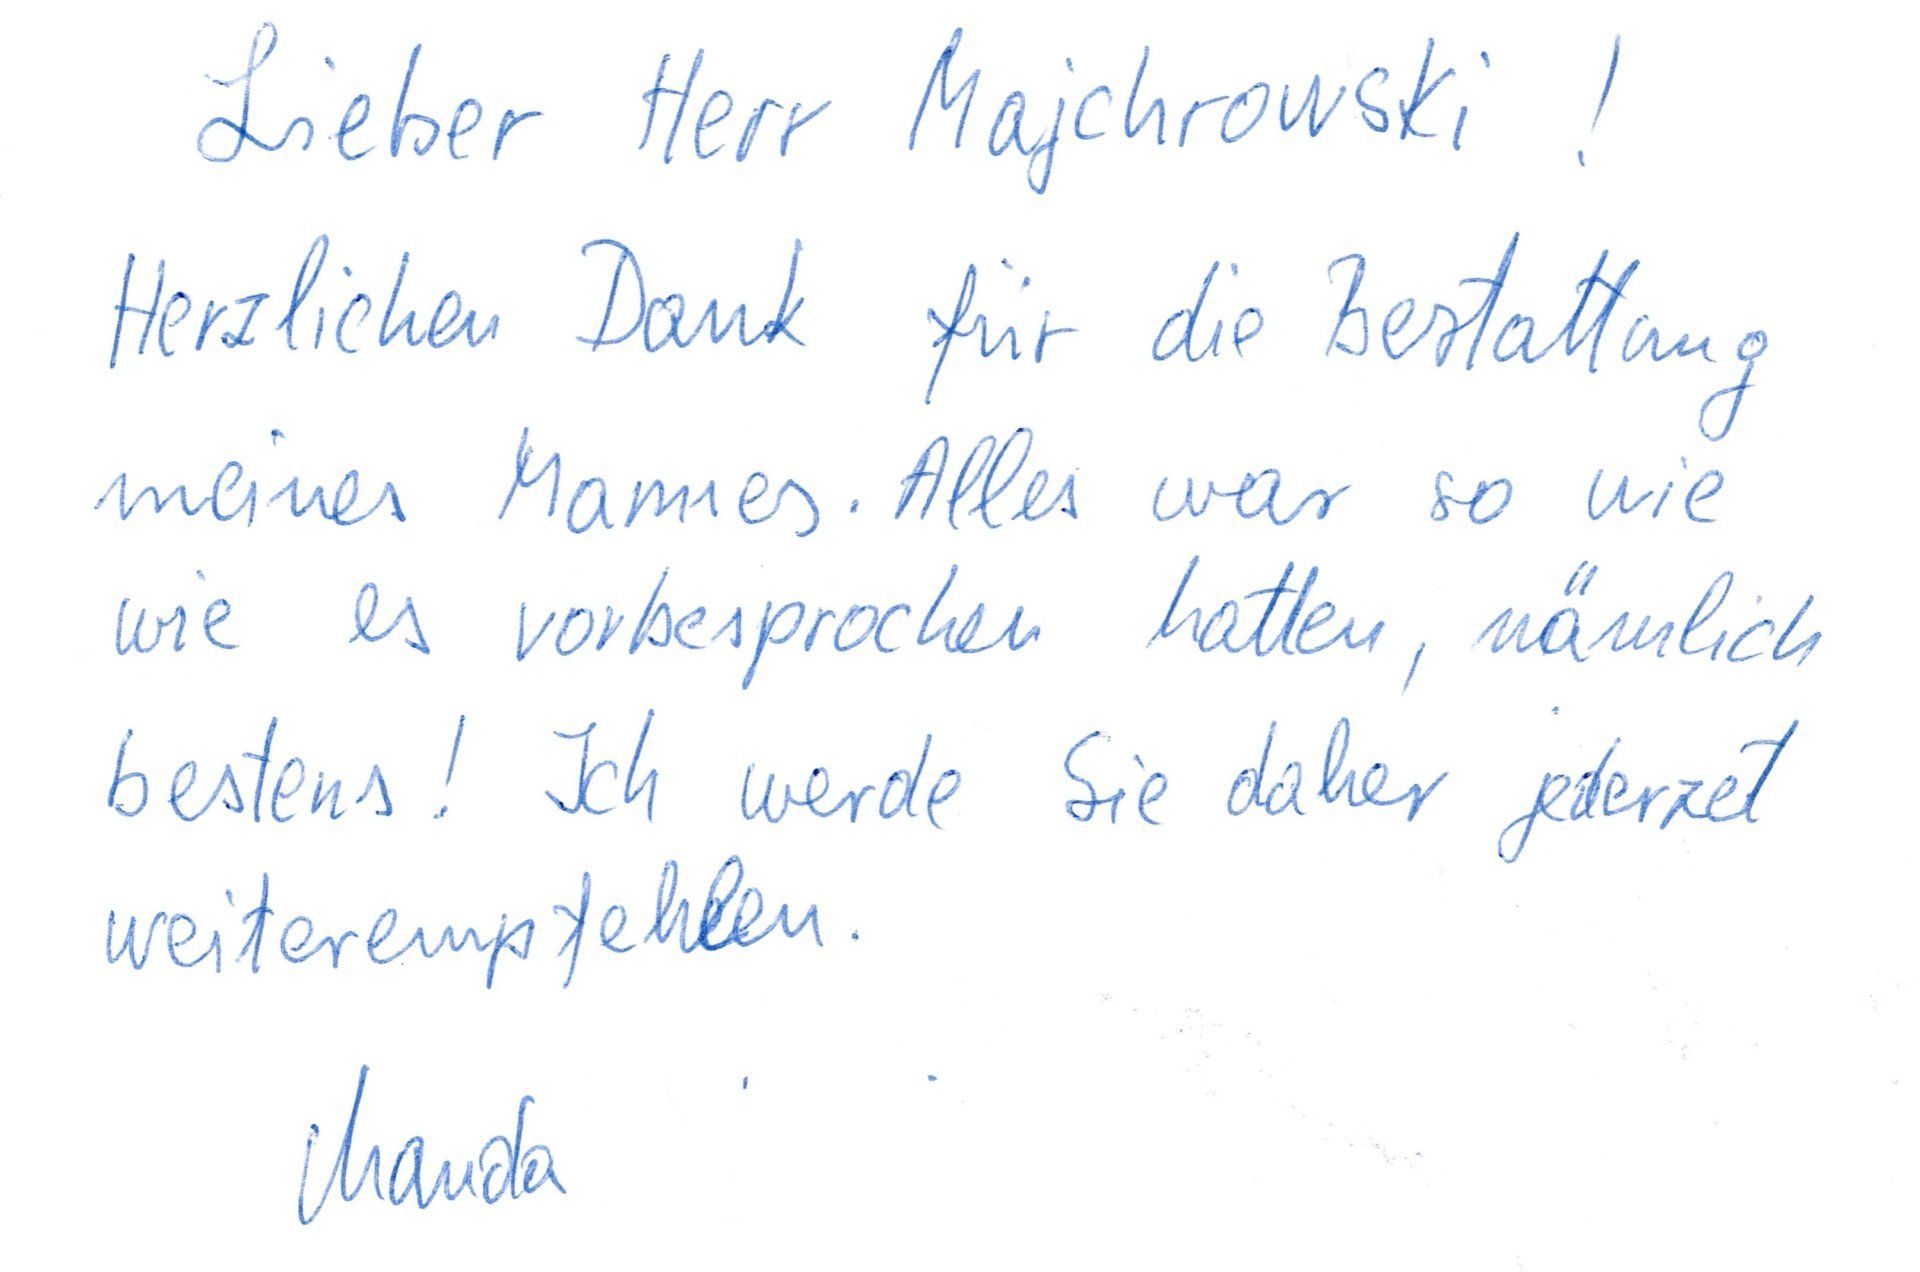 Lieber Herr Majchrowski !
Herzlichen Dank für die Bestattung
meines Mannes. Alles war so wie
wie es vorbesprochen hatten, nämlich
bestens! Ich werde Sie daher jederzet
weiterempfehlen.
Manda